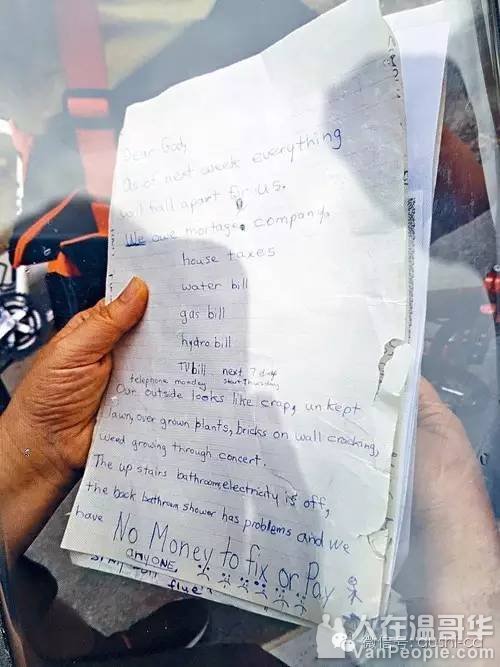 Dear God,
As of next week everything
will fall apart for us.
We owe mortage company.
house taxes
water bill
gas bill
hydro bill
TV bill next 7 day
telephone monday start Thursday
Our outside looks like crap, unkept
lawn, over grown plants, bricks on wall cracking,
weed growing through concert.
The up stairs bathroom electricity is off,
the back bathroom shower has problems and we
have No Money to fix or Pay
anyone.
人在温哥华
微信号: dushi-ca
VanPeople.com